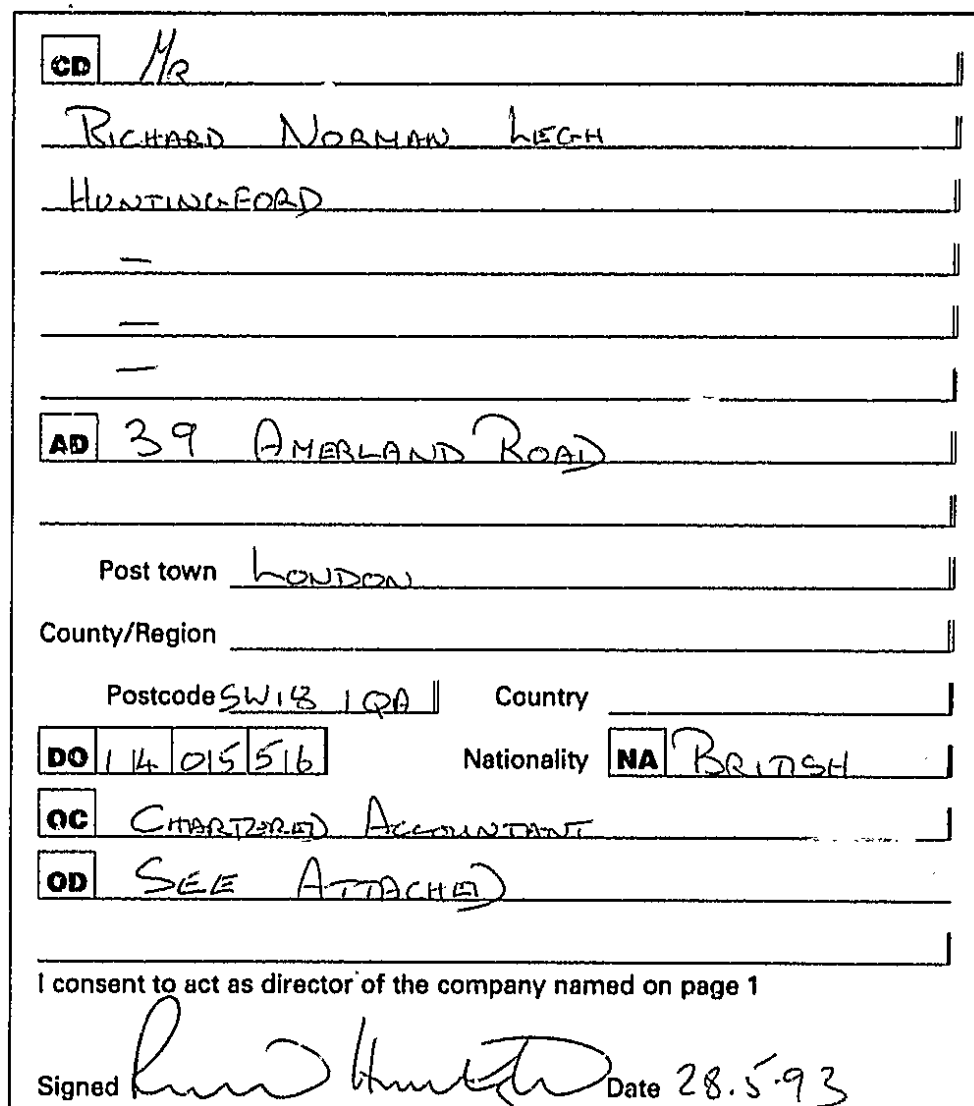 CD Mr
RICHARD NORMAN LEGH
HUNTINGFORD
—
—
—
AD 39 AMERLAND ROAD
Post town LONDON
County/Region
Postcode SW18 1QA Country
DO 14 05 56 Nationality NA BRITISH
OC CHARTERED ACCOUNTANT
OD SEE ATTACHED
I consent to act as director of the company named on page 1
Signed Date 28.5.93